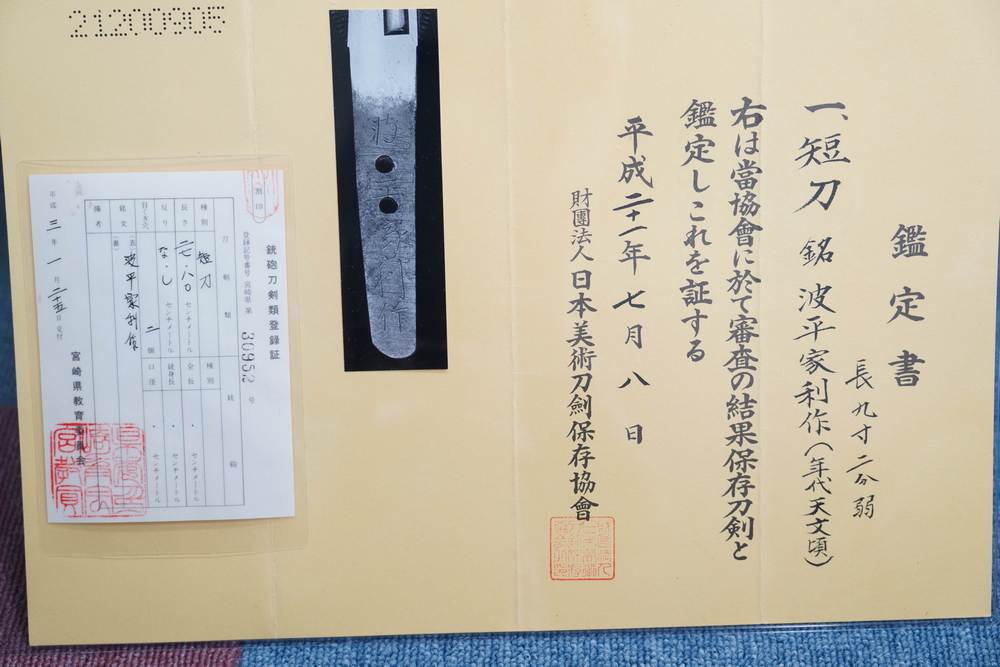 鑑定書
一、短刀 銘 波平家利作(年代天文頃)
長九寸二分弱
右は當協會に於て審査の結果保存刀剣と
鑑定しこれを証する
平成二十一年七月八日
財團法人日本美術刀劍保存協會
21200905
銃砲刀剣類登録証
登録記号番号 宮崎県 第 30952 号
割印
刀剣類
銃砲
種別 短刀
種別
長さ 二七・八〇 センチメートル
全長 ・ センチメートル
反り なし センチメートル
銃身長 ・ センチメートル
目くぎ穴 二 個
口径 ・ センチメートル
銘文 (表) 波平家利作
(裏)
備考
平成三年1月二十五日交付
宮崎県教育委員会